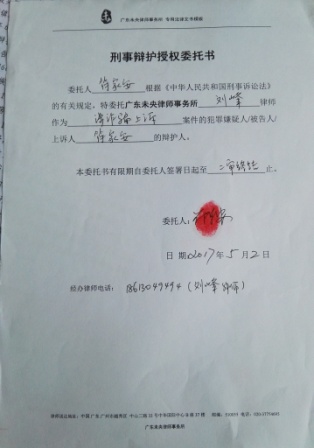 广东未央律师事务所 专用法律文书模板
刑事辩护授权委托书
委托人 徐家安 根据《中华人民共和国刑事诉讼法》
的有关规定,特委托广东未央律师事务所 刘峰 律师
作为 上诉 案件的犯罪嫌疑人/被告人/
上诉人 徐家安 的辩护人。
本委托书有限期自委托人签署日起至 二审终结 止。
委托人:
日 期:2017年5月2日
经办律师电话: (刘峰 律师)
广东未央律师事务所